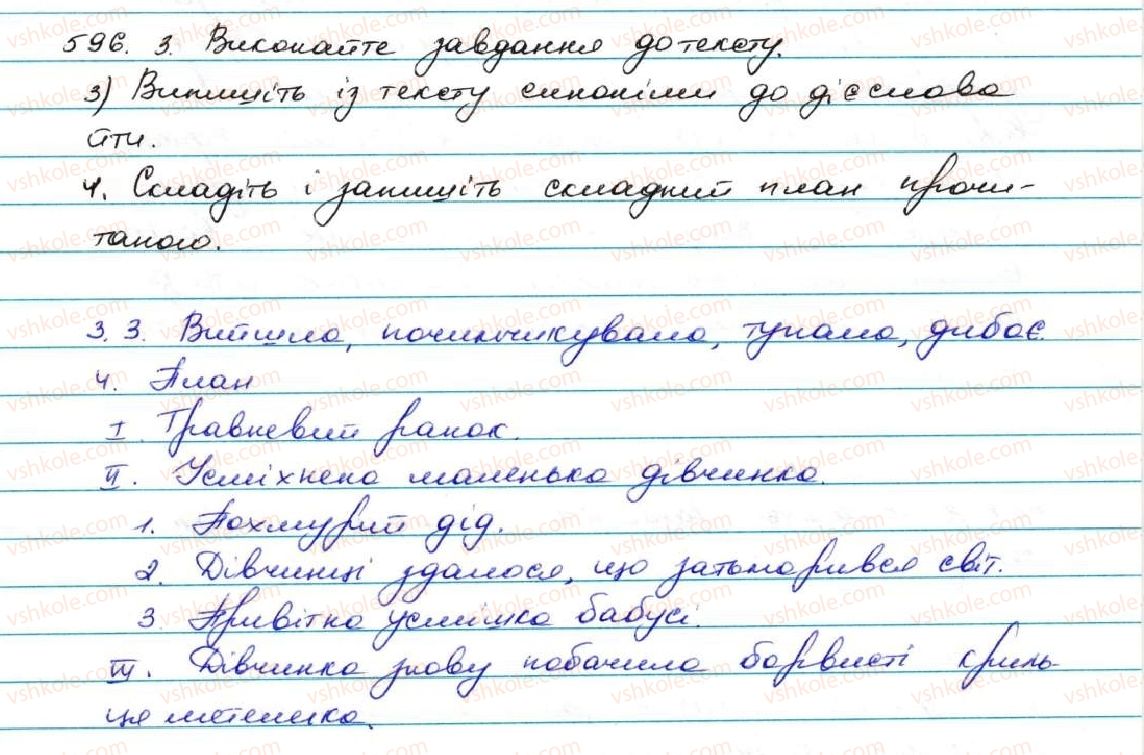 596. 3. Виконайте завдання до тексту.
3) Випишіть із тексту синоніми до дієслова
йти.
4. Складіть і запишіть складний план прочи-
таного.
3. 3. Вийшла, почимчикувала, тупала, дибає.
4. План
I. Травневий ранок.
II. Усміхнена маленька дівчинка.
1. Похмурий дід.
2. Дівчинці здалося, що затьмарився світ.
3. Привітна усмішка бабусі.
III. Дівчинка знову побачила барвисті криль-
ця метелика.